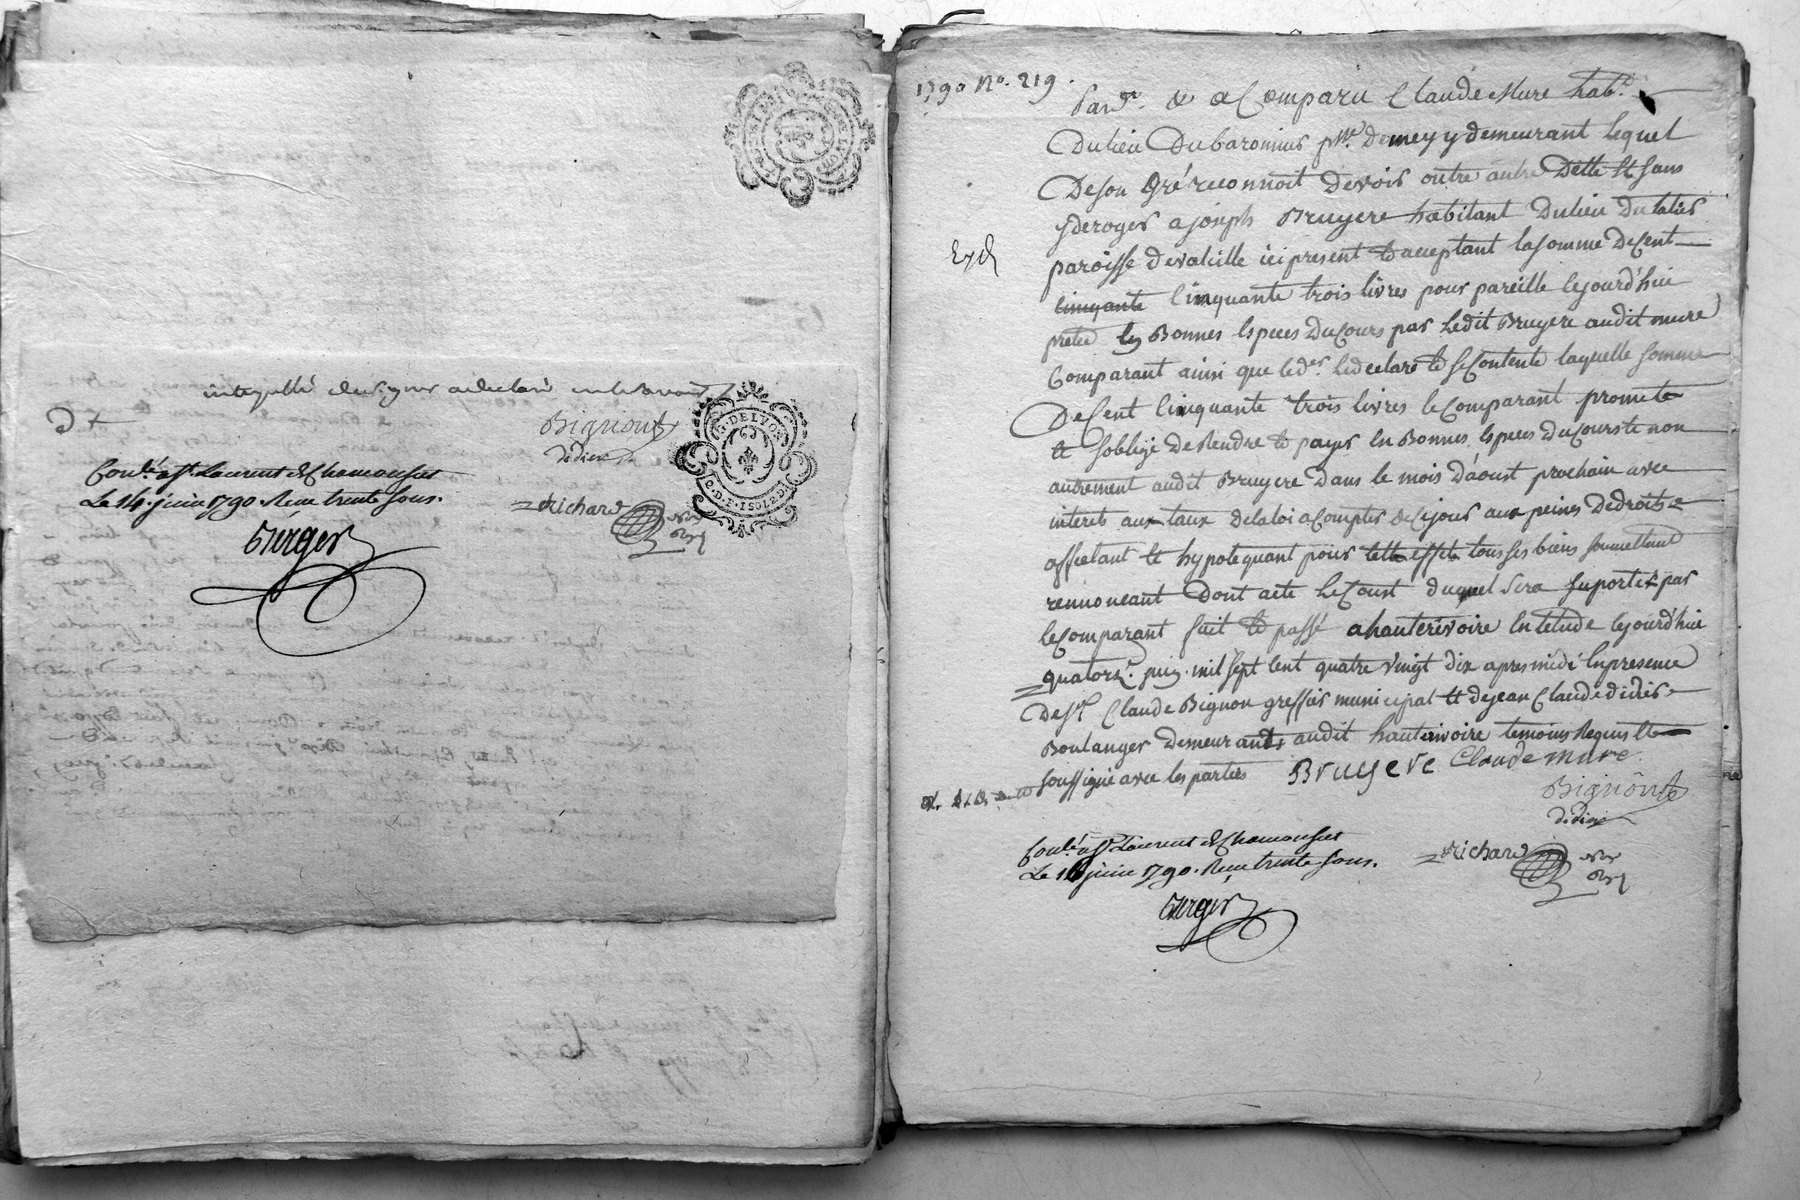 interpellé de signer a declaré ne le savoir
Bignon
didier
Richard
Conlé a St. Laurent de Chamousset
Le 14. juin 1790. Recu trente sous.
Verger
G. DE LYON
1790 No. 219.
Pard. & a Comparu Claude Mure habt.
Du lieu Du baronnius psse. Demeys y demeurant lequel
De son Gré reconnoit Devoir outre autre Dette Et sans
y deroger a joseph Bruyere habitant Du lieu Du tatier
paroisse de valeille ici present Et acceptant la somme De Cent
Cinquante Cinquante trois livres pour pareille Cejourd'hui
pretée En Bonnes Especes Du Cours par Ledit Bruyere audit mure
Comparant ainsi que led. Le declare Et se Contente laquelle somme
De Cent Cinquante trois livres le Comparant promet
Et s'oblige De Rendre Et payer En Bonnes Especes Du Cours Et non
autrement audit Bruyere Dans le mois D'aoust prochain avec
interets aux taux De la loi a Compter De Cejour aux peines De droit
affectant Et hypotequant pour Cett effet tous ses biens soumettant
renonceant Dont acte Le Coust duquel sera suporté par
le Comparant fait Et passé a hauterivoire En l'etude Cejourd'hui
quatorz. juin mil sept Cent quatre Vingt dix apres midi En presence
De sr. Claude Bignon greffier municipal Et de jean Claude didier
Boulanger Demeurants audit hauterivoire temoins Requis Et
soussigné avec les parties Bruyere Claude mure
Bignon
didier
Richard
Conlé a St. Laurent de Chamousset
Le 16 juin 1790. Recu trente sous.
Verger